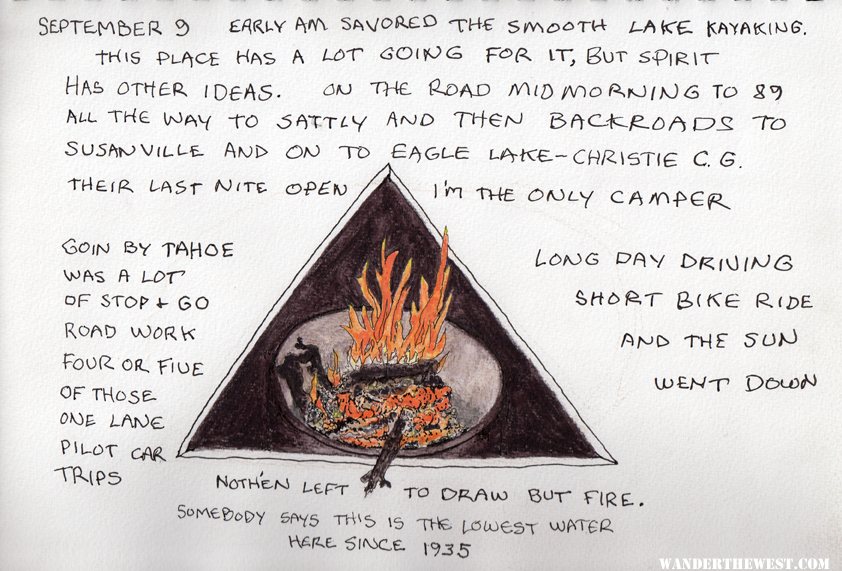 SEPTEMBER 9 EARLY AM SAVORED THE SMOOTH LAKE KAYAKING.
THIS PLACE HAS A LOT GOING FOR IT, BUT SPIRIT
HAS OTHER IDEAS. ON THE ROAD MID MORNING TO 89
ALL THE WAY TO SATTLY AND THEN BACKROADS TO
SUSANVILLE AND ON TO EAGLE LAKE-CHRISTIE C.G.
THEIR LAST NITE OPEN I'M THE ONLY CAMPER
GOIN BY TAHOE
WAS A LOT
OF STOP + GO
ROAD WORK
FOUR OR FIVE
OF THOSE
ONE LANE
PILOT CAR
TRIPS
LONG DAY DRIVING
SHORT BIKE RIDE
AND THE SUN
WENT DOWN
NOTH'EN LEFT TO DRAW BUT FIRE.
SOMEBODY SAYS THIS IS THE LOWEST WATER
HERE SINCE 1935
WANDERTHEWEST.COM